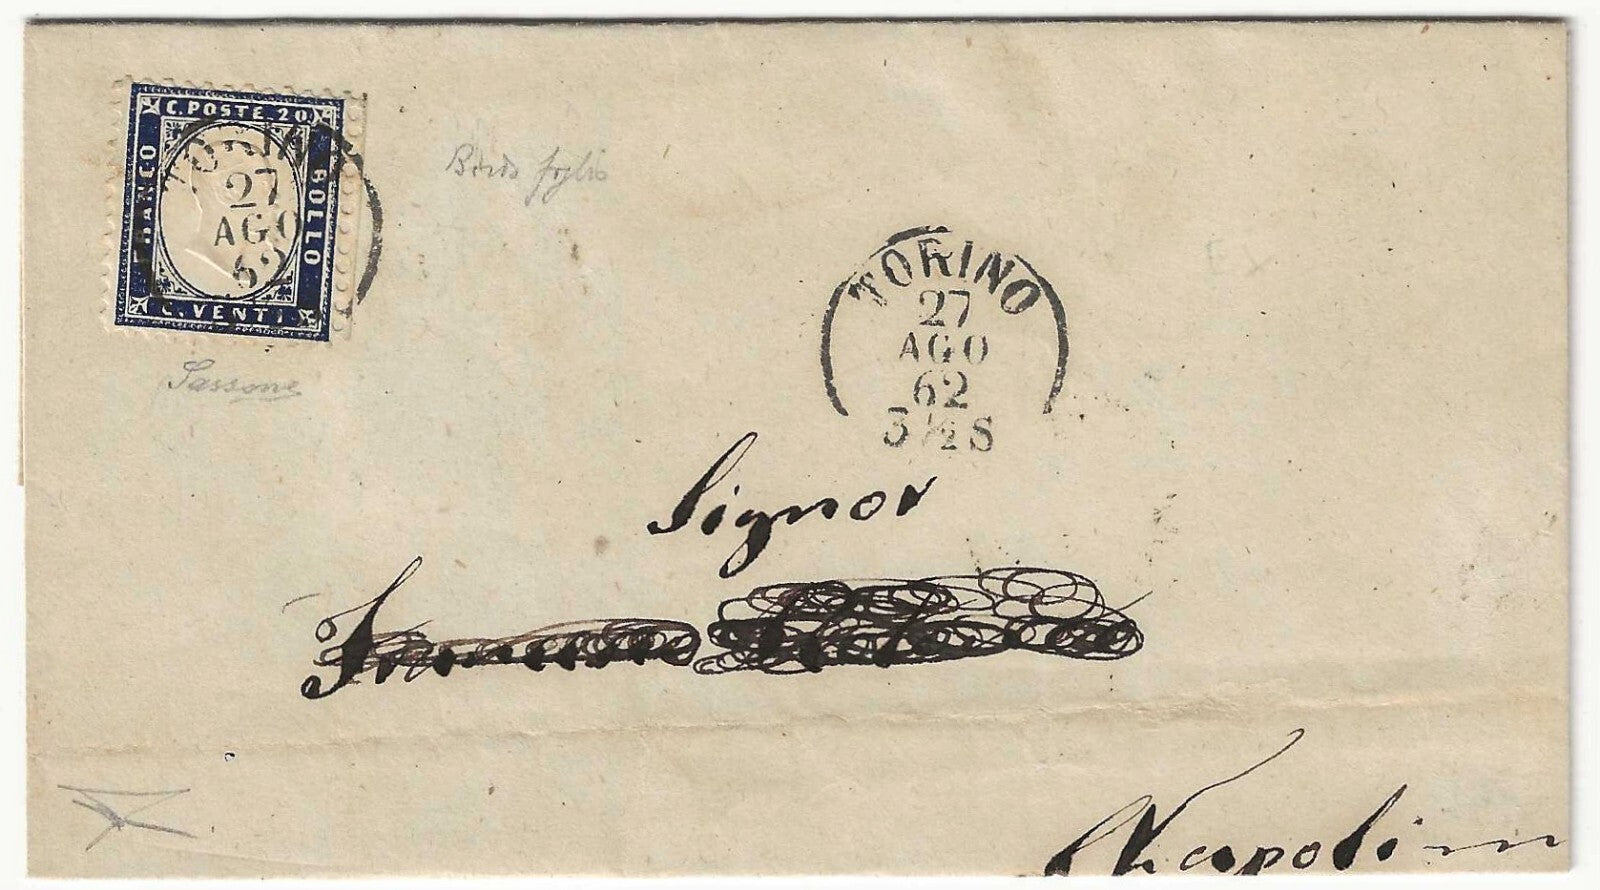 C. POSTE. 20
FRANCO
BOLLO
C. VENTI
TORINO
27
AGO
62
Bordo foglio
Sassone
TORINO
27
AGO
62
5 ½ S
Signor
Napoli